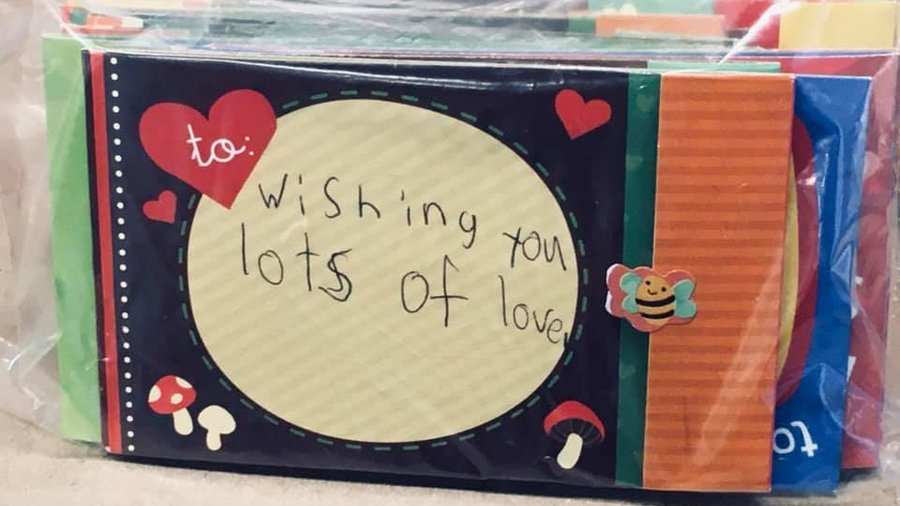 to:
wishing you
lots of love.
to